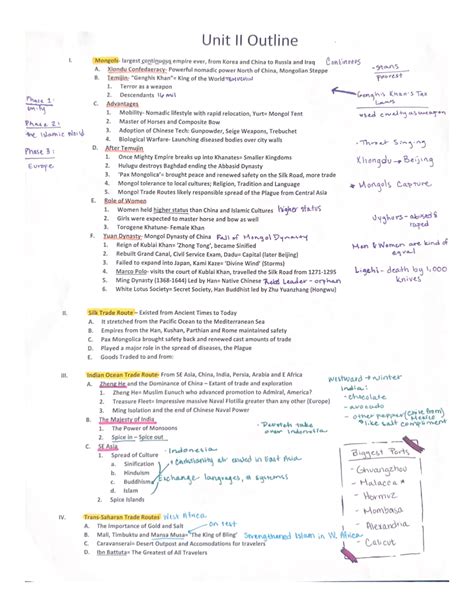 Unit II Outline
I. Mongols- largest contiguous empire ever, from Korea and China to Russia and Iraq
A. Xiondu Confedaeracy- Powerful nomadic power North of China, Mongolian Steppe
B. Temijin- "Genghis Khan"= King of the World
1. Terror as a weapon
2. Descendants 16 mil
C. Advantages
1. Mobility- Nomadic lifestyle with rapid relocation, Yurt= Mongol Tent
2. Master of Horses and Composite Bow
3. Adoption of Chinese Tech: Gunpowder, Seige Weapons, Trebuchet
4. Biological Warfare- Launching diseased bodies over city walls
D. After Temujin
1. Once Mighty Empire breaks up into Khanates= Smaller Kingdoms
2. Hulegu destroyed Baghdad, 1258
3. 'Pax Mongolica'= brought peace and renewed safety on the Silk Road, more trade
4. Mongol tolerance to local cultures; Religion, Tradition and Language
5. Mongol Trade Routes likely responsible spread of the Plague from Central Asia
E. Role of Women
1. Women held higher status than China and Islamic Cultures higher status
2. Girls were expected to master horse and bow as well
3. Torogene Khatune- Female Khan
F. Yuan Dynasty- Mongol Dynasty of China Fall of Mongol Dynasty
1. Reign of Kublai Khan= 'Zhong Tong', became Sinified
2. Rebuilt Grand Canal, Civil Service Exam, Dadu= Capital (later Beijing)
3. Failed to expand into Japan, Kami Kaze= 'Divine Wind' (Storms)
4. Marco Polo- visits the court of Kublai Khan, travelled the Silk Road from 1271-1295
5. Ming Dynasty (1368-1644) led by Han= Native Chinese Rebel Leader - orphan
6. White Lotus Society= Secret Society, Han Buddhist led by Zhu Yuanzhang (Hongwu)
Phase 1:
Phase 2:
the Islamic World
Phase 3:
Europe
-stans
poorest
Genghis Khan's Tax
Laws
used cruelty as weapon
- Throat Singing
Khongdu → Beijing
* Mongols Capture
Uyghors- abused &
raped
Men & Women are kind of
equal
Ligchi- death by 1,000
knives
II. Silk Trade Route – Existed from Ancient Times to Today
A. It stretched from the Pacific Ocean to the Mediterranean Sea
B. Empires from the Han, Kushan, Parthian and Rome maintained safety
C. Pax Mongolica brought safety back and renewed cast amounts of trade
D. Played a major role in the spread of diseases, the Plague
E. Goods Traded to and from:
III. Indian Ocean Trade Route- From SE Asia, China, India, Persia, Arabia and E Africa
A. Zheng He and the Dominance of China – Extant of trade and exploration
1. Zheng He= Muslim Eunuch who advanced promotion to Admiral, America?
2. Treasure Fleet= Impressive massive Naval Flotilla greater than any other (Pacific)
3. Ming Isolation and the end of Chinese Naval Power
B. The Majesty of India
1. The Power of Monsoons
2. Spice in – Spice out
C. SE Asia - Indonesia
1. Spread of Culture
a. Sinification
b. Hinduism
c. Buddhism
d. Islam
2. Spice Islands
- Dutch take
over Indonesia
* Christianity at ended in East Asia
Exchange languages, & systems
westward → winter
India:
- chocolate
- avocado
- other pepper (came from Mexico)
* like salt component
Biggest Ports
- Ghuangzhou
- Malacca *
- Hormuz
- Mombasa
- Alexandria
- Calicut
IV. Trans-Saharan Trade Routes West Africa
A. The Importance of Gold and Salt - on test
B. Mali, Timbuktu and Mansa Musa= 'The King of Bling' Strengthened Islam in W. Africa
C. Caravanserai= Desert Outpost and Accomodations for travelers
D. Ibn Battuta= The Greatest of All Travelers